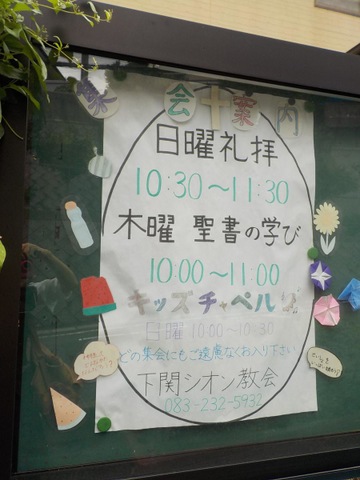 集会案内
日曜礼拝
10:30～11:30
木曜 聖書の学び
10:00～11:00
キッズチャペル
日曜 10:00～10:30
どの集会にもご遠慮なくお入り下さい
下関シオン教会
083-232-5932